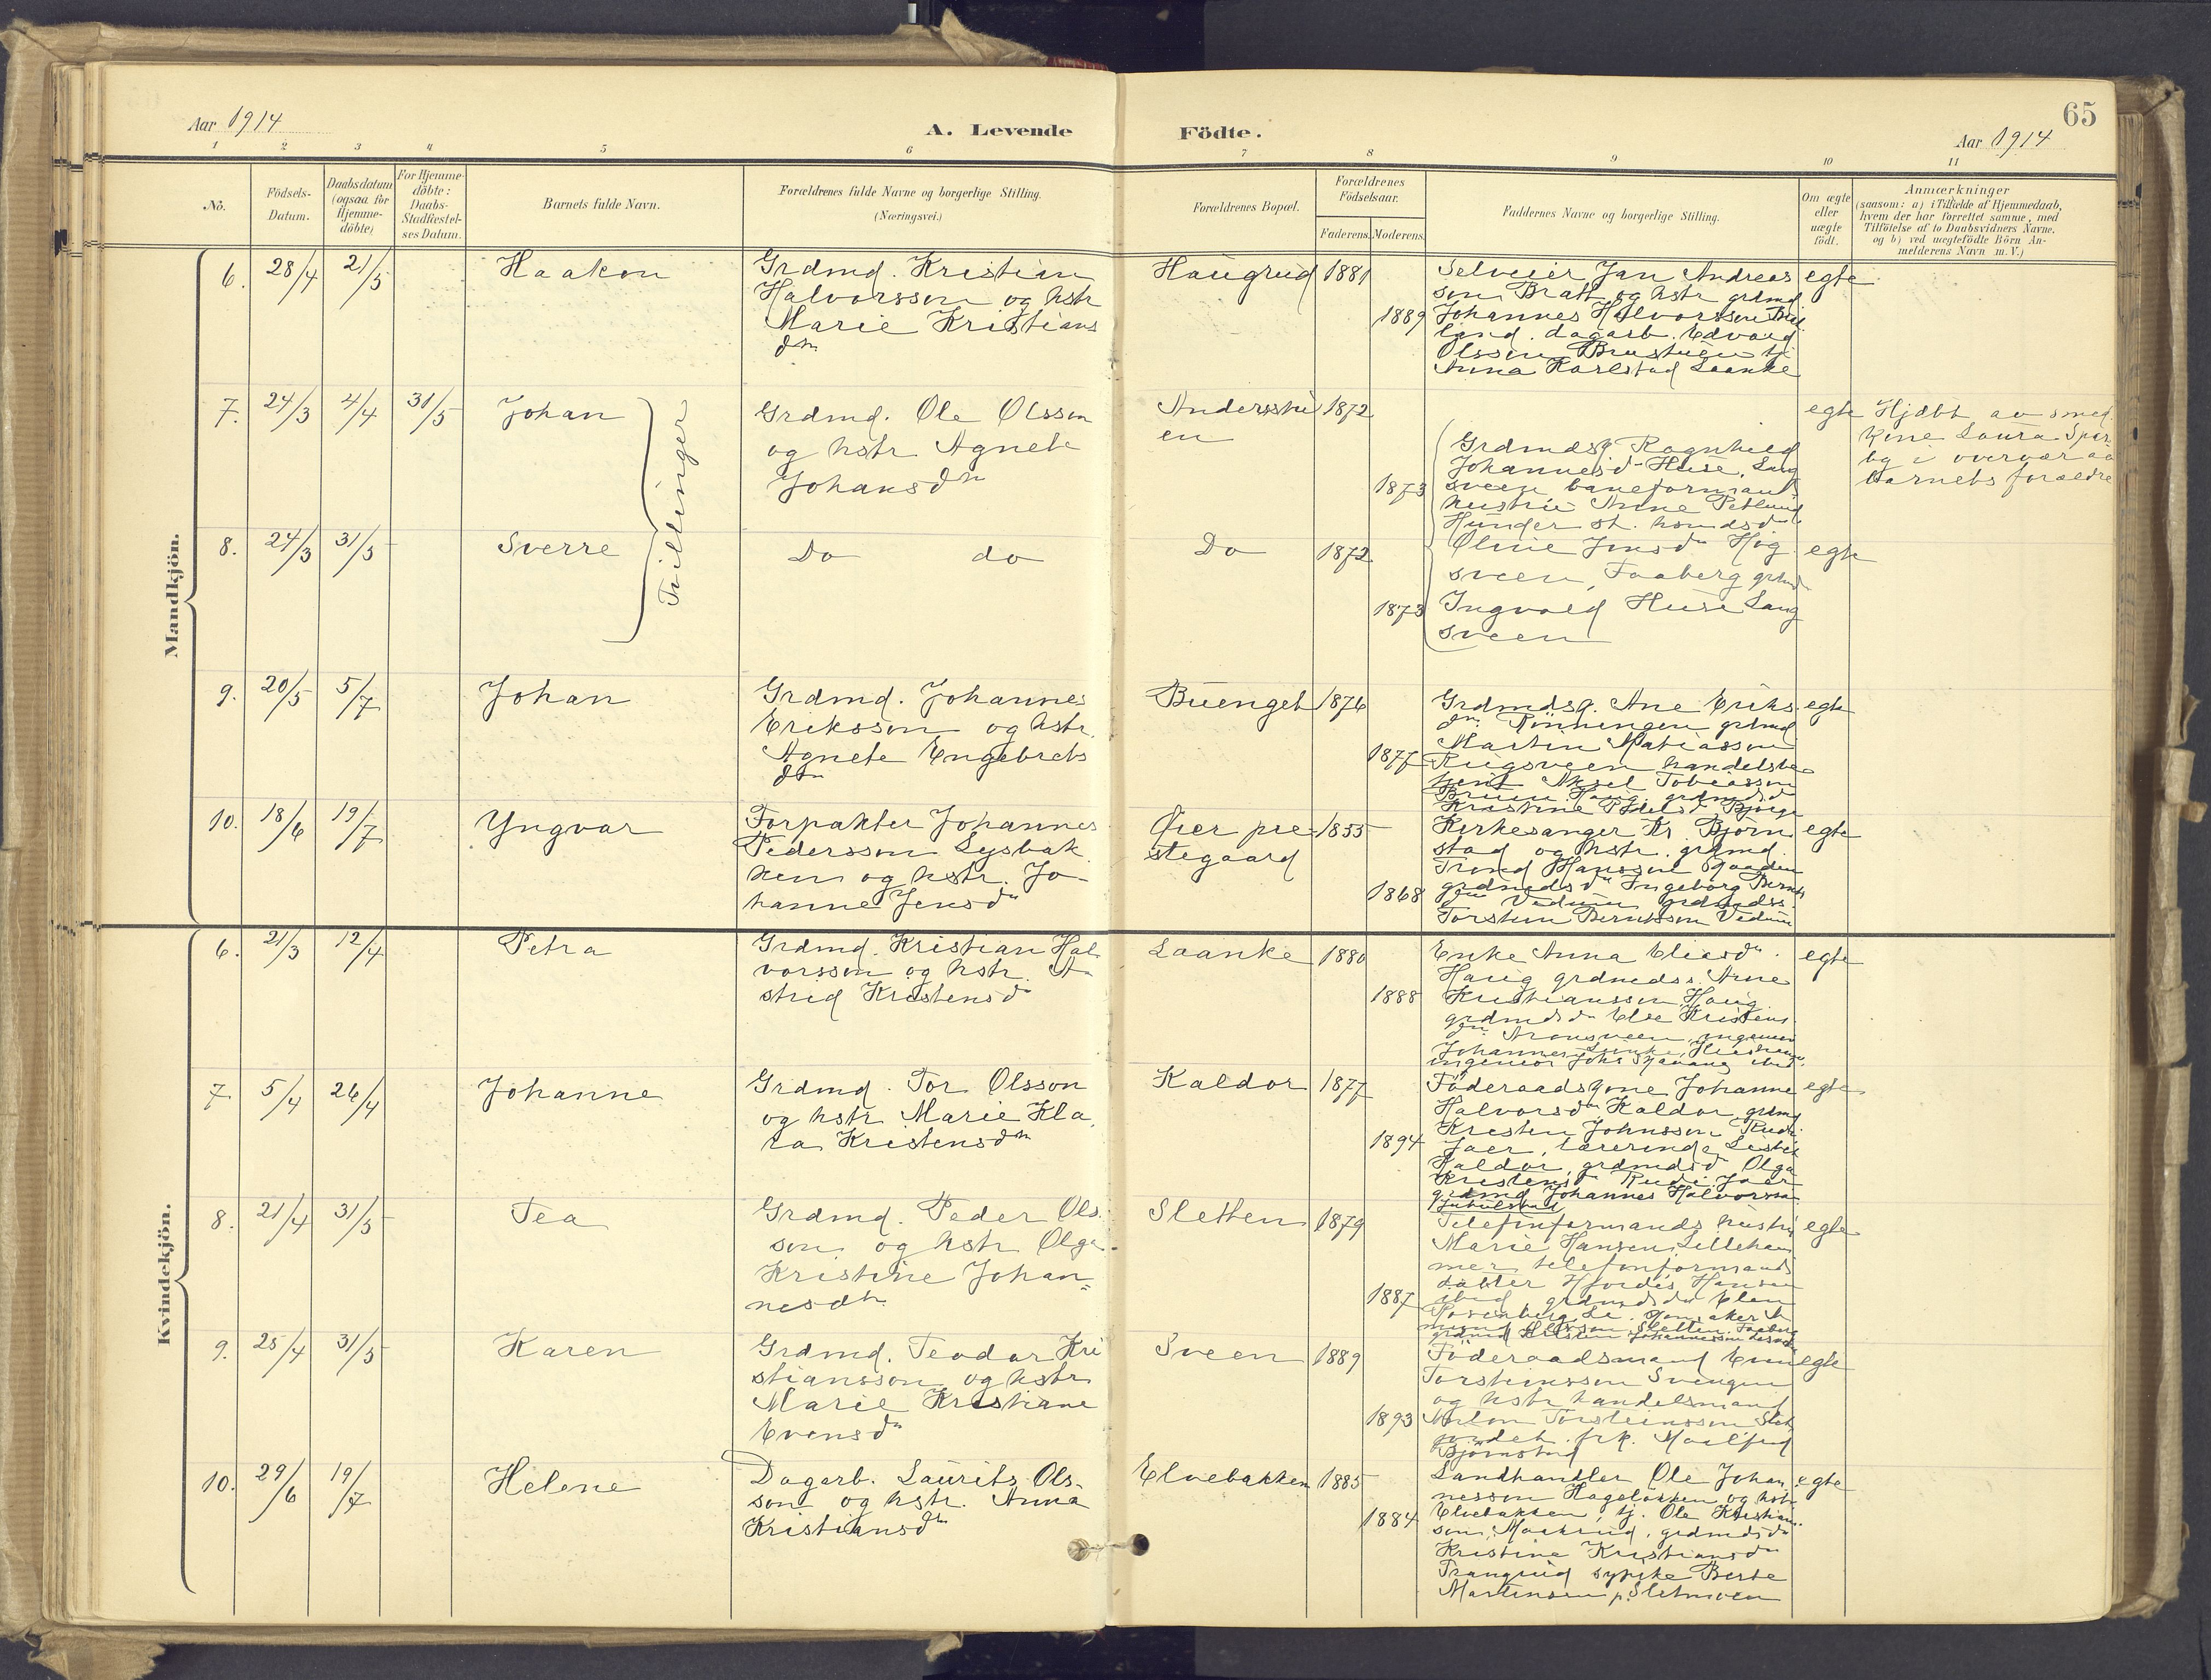 65
Aar 1914
A. Levende Födte.
Aar 1914
1 2 3 4 5 6 7 8 9 10 11
No.
Födsels-
Datum.
Daabsdatum
(ogsaa for
Hjemme-
döbte)
For Hjemme-
döbte:
Daabs-
Stadfæstel-
ses Datum.
Barnets fulde Navn.
Forældrenes fulde Navne og borgerlige Stilling.
(Næringsvei.)
Forældrenes Bopæl.
Forældrenes
Födselsaar.
Faderens. Moderens.
Faddernes Navne og borgerlige Stilling.
Om ægte
eller
uægte
födt.
Anmærkninger
(saasom: a) i Tilfælde af Hjemmedaab,
hvem der har forrettet samme, med
Tilföielse af to Daabsvidners Navne.
og b) ved uægtefödte Börn An-
melderens Navn m.V.)
Mandkjön.
6. 28/4 21/5 Haakon
Grdmd. Kristian
Halvorsson og hstr
Marie Kristians
dtr.
Haugrud 1881
1889
Selveier Jan Andreas
son Bratt og hstr grdmd
Johannes Halvorsson
land. dagarb. Edvard
Olsson Brustuen tj.
Anna Karlstad Laanke
egte
7. 24/3 4/4 31/5 Johan
Tvillinger
Grdmd. Ole Olsson
og hstr Agnete
Johansdtr
Anderssvé
en
1872
1873
egte
Hjdbt av smed
kone Laura
og i overvær av
barnets forældre
Grdmdsg Ragnhild
Johannesd. Huse, Lang
sveen baneformand
hustru Anne Petlund
Hunder st. hsmdsdtr
Oline Jensdtr Høg
sveen, Faaberg grdmds
Ingvald Huse Lang
sveen
8. 24/3 31/5 Sverre
Do do
Do 1872
1873
egte
9. 20/5 5/7 Johan
Grdmd. Johannes
Eriksson og hstr.
Agnete Engebrets
dtr
Buenget 1876
1877
Grdmdsg. Ane Eriks
dtr. Rønningen grdmd
Martin Matiasson
Rugsveen handelsbe
tjent Aksel Tobiasson
Bruun Haug. grdmdsd
Kristine
egte
10. 18/6 19/7 Yngvar
Forpakter Johannes
Pedersson Lysbak
ken og hstr. Jo-
hanne Jensdtr
Øier pre-
stegaard
1855
1868
Kirkesanger Kr. Bjørn
stad og hstr. grdmd.
Trond Hansson Gaarden
grdmdsdtr Ingeborg Bernts
dtr Vedum grdmdss.
Torstein Berntsson Vedum
egte
Kvindekjön.
6. 21/3 12/4 Petra
Grdmd. Kristian Hal
vorsson og hstr. A-
strid Kristensdtr
Laanke 1880
1888
Enke Anna Eliasdtr.
Haug grdmdss. Arne
Kristiansson Haug
grdmdsdtr Else Kristens
dtr Aronsveen, ingeniør
Johannes
ingeniør Johs
egte
7. 5/4 26/4 Johanne
Grdmd. Tor Olsson
og hstr Marie Kla,
ra Kristensdtr
Kaldor 1877
1894
Föderaadskone Johanne
Halvorsdtr Kaldor, grdmd
Kristen Johnsson Rudi
Jaer, lærerinde
Kaldor, grdmdsd Olga
Kristensd Rudi Jaer
grdmd Johannes Halvorsson
egte
8. 21/4 31/5 Tea
Grdmd. Peder Ols.
son og hstr Olga
Kristine Johan-
nesdtr.
Sletten 1879
1887
Telefonformands hustru
Marie Hansen Lilleham
mer telefonformands
datter Hjørdis Hansen
ibid, grdmdsdtr Elen
Sletten Faaberg
grdmd Kristen Johannesson
egte
9. 25/4 31/5 Karen
Grdmd. Teodor Kri
stiansson og hstr
Marie Kristiane
Evensdtr
Sveen 1889
1893
Föderaadsmand Even
Torsteinsson Svengen
og hstr handelsmand
Anton Torsteinsson
frk.
Bjørnstad
egte
10. 29/6 19/7 Helene
Dagarb. Laurits Ols-
son og hstr. Anna
Kristiansdtr
Elvebakken 1885
1884
Landhandler Ole Johan
nesson Hageløkken og hstr
Elvebakken, tj. Ole Kristians
son, grdmdsdtr
Kristine Kristiansdtr
Trangrud sypike Berte
Martinsen p. Sletmoen
egte